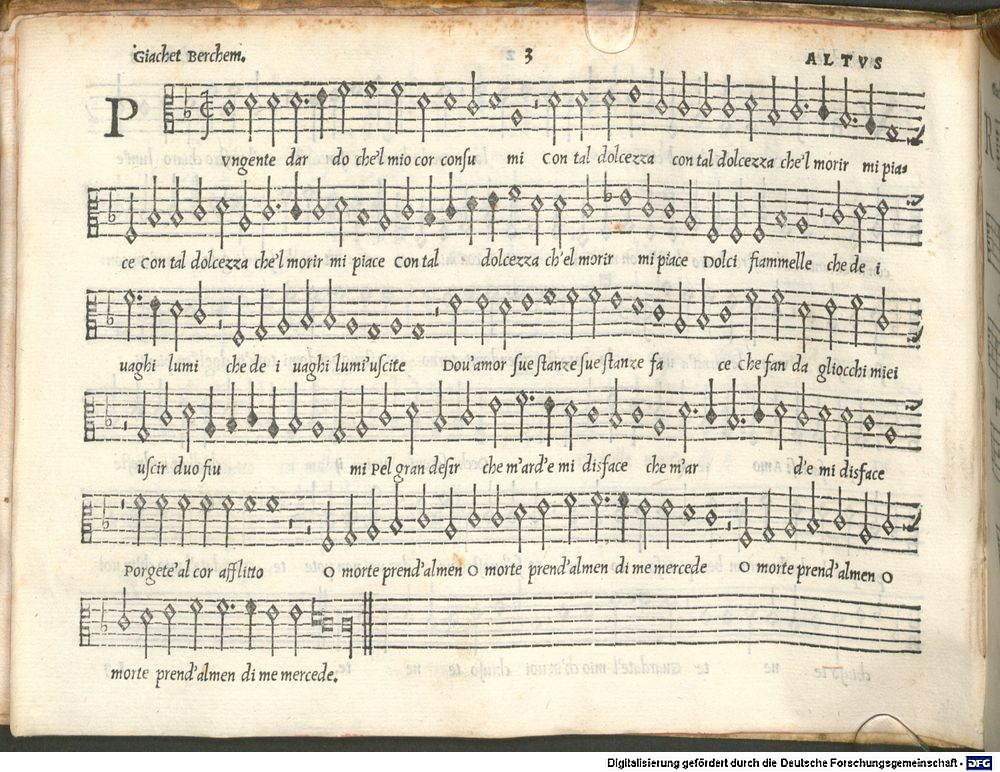 Giachet Berchem. 3 ALTVS
P
vngente dar do che'l mio cor consu mi Con tal dolcezza con tal dolcezza che'l morir mi pia=
ce Con tal dolcezza che'l morir mi piace Con tal dolcezza ch'el morir mi piace Dolci fiammelle che de i
uaghi lumi che de i uaghi lumi'uscite Dou'amor sue stanze sue stanze fa ce che fan da gliocchi miei
uscir duo fiu mi Pel gran desir che m'ard'e mi disface che m'ar d'e mi disface
Porgete'al cor afflitto O morte prend'almen O morte prend'almen di me mercede O morte prend'almen O
morte prend'almen di me mercede.
Digitalisierung gefördert durch die Deutsche Forschungsgemeinschaft - DFG